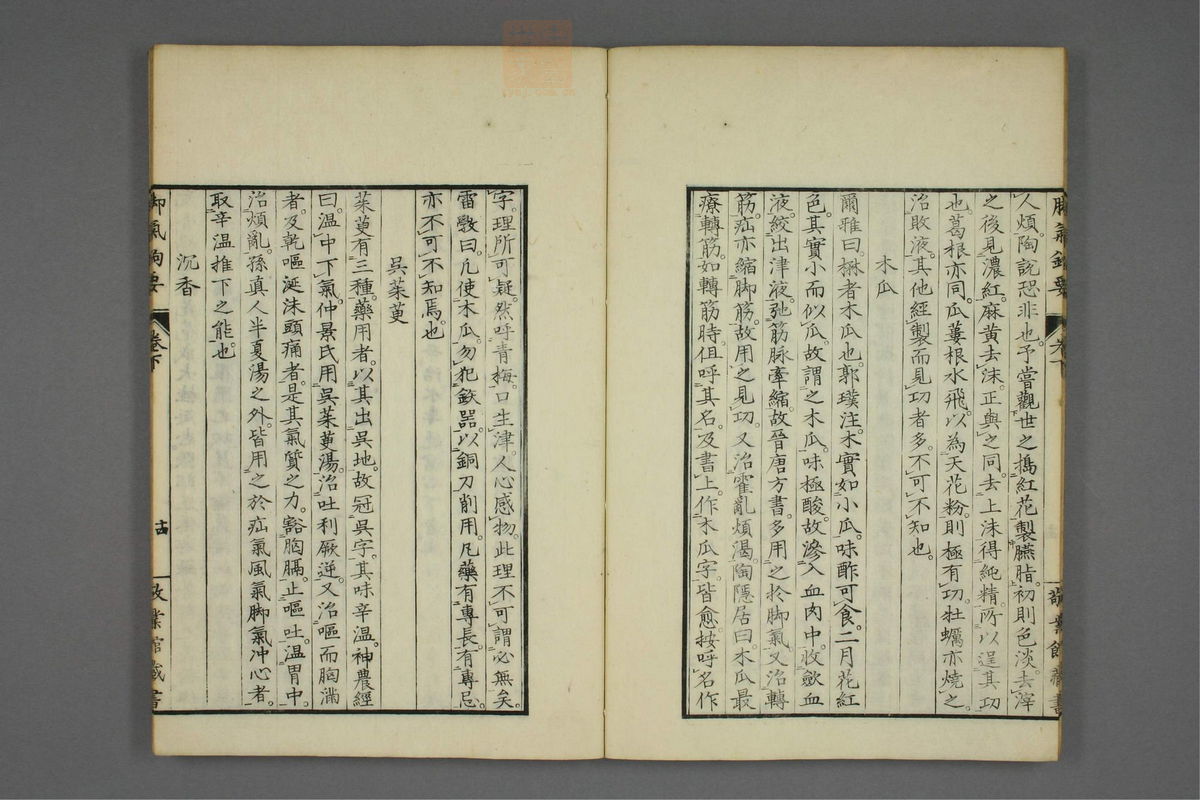 人煩陶說恐非也予嘗觀世之搗紅花製臙脂初則色淡去滓
之後見濃紅麻黃去沫正與之同去上沫得純精所以逞其功
也葛根亦同瓜蔞根水飛以為天花粉則極有功牡蠣亦燒之
治敗液其他經製而見功者多不可不知也
木瓜
爾雅曰楙者木瓜也郭璞注木實如小瓜味酢可食二月花紅
色其實小而似瓜故謂之木瓜味極酸故滲入血肉中收歛血
液絞出津液弛筋脉牽縮故晉唐方書多用之於脚氣又治轉
筋疝亦縮脚筋故用之見功又治霍亂煩渴陶隱居曰木瓜最
療轉筋如轉筋時但呼其名及書上作木瓜字皆愈按呼名作
字理所可疑然呼青梅口生津人心感物此理不可謂必無矣
雷斆曰凡使木瓜勿犯鉄器以銅刀削用凡藥有專長有專忌
亦不可不知焉也
吳茱萸
茱萸有三種藥用者以其出吳地故冠吳字其味辛温神農經
曰温中下氣仲景氏用吳茱萸湯治吐利厥逆又治嘔而胸滿
者及乾嘔涎沫頭痛者是其氣質之力豁胸膈止嘔吐温胃中
治煩亂孫真人半夏湯之外皆用之於疝氣風氣脚氣冲心者
取辛温推下之能也
沉香
卷下